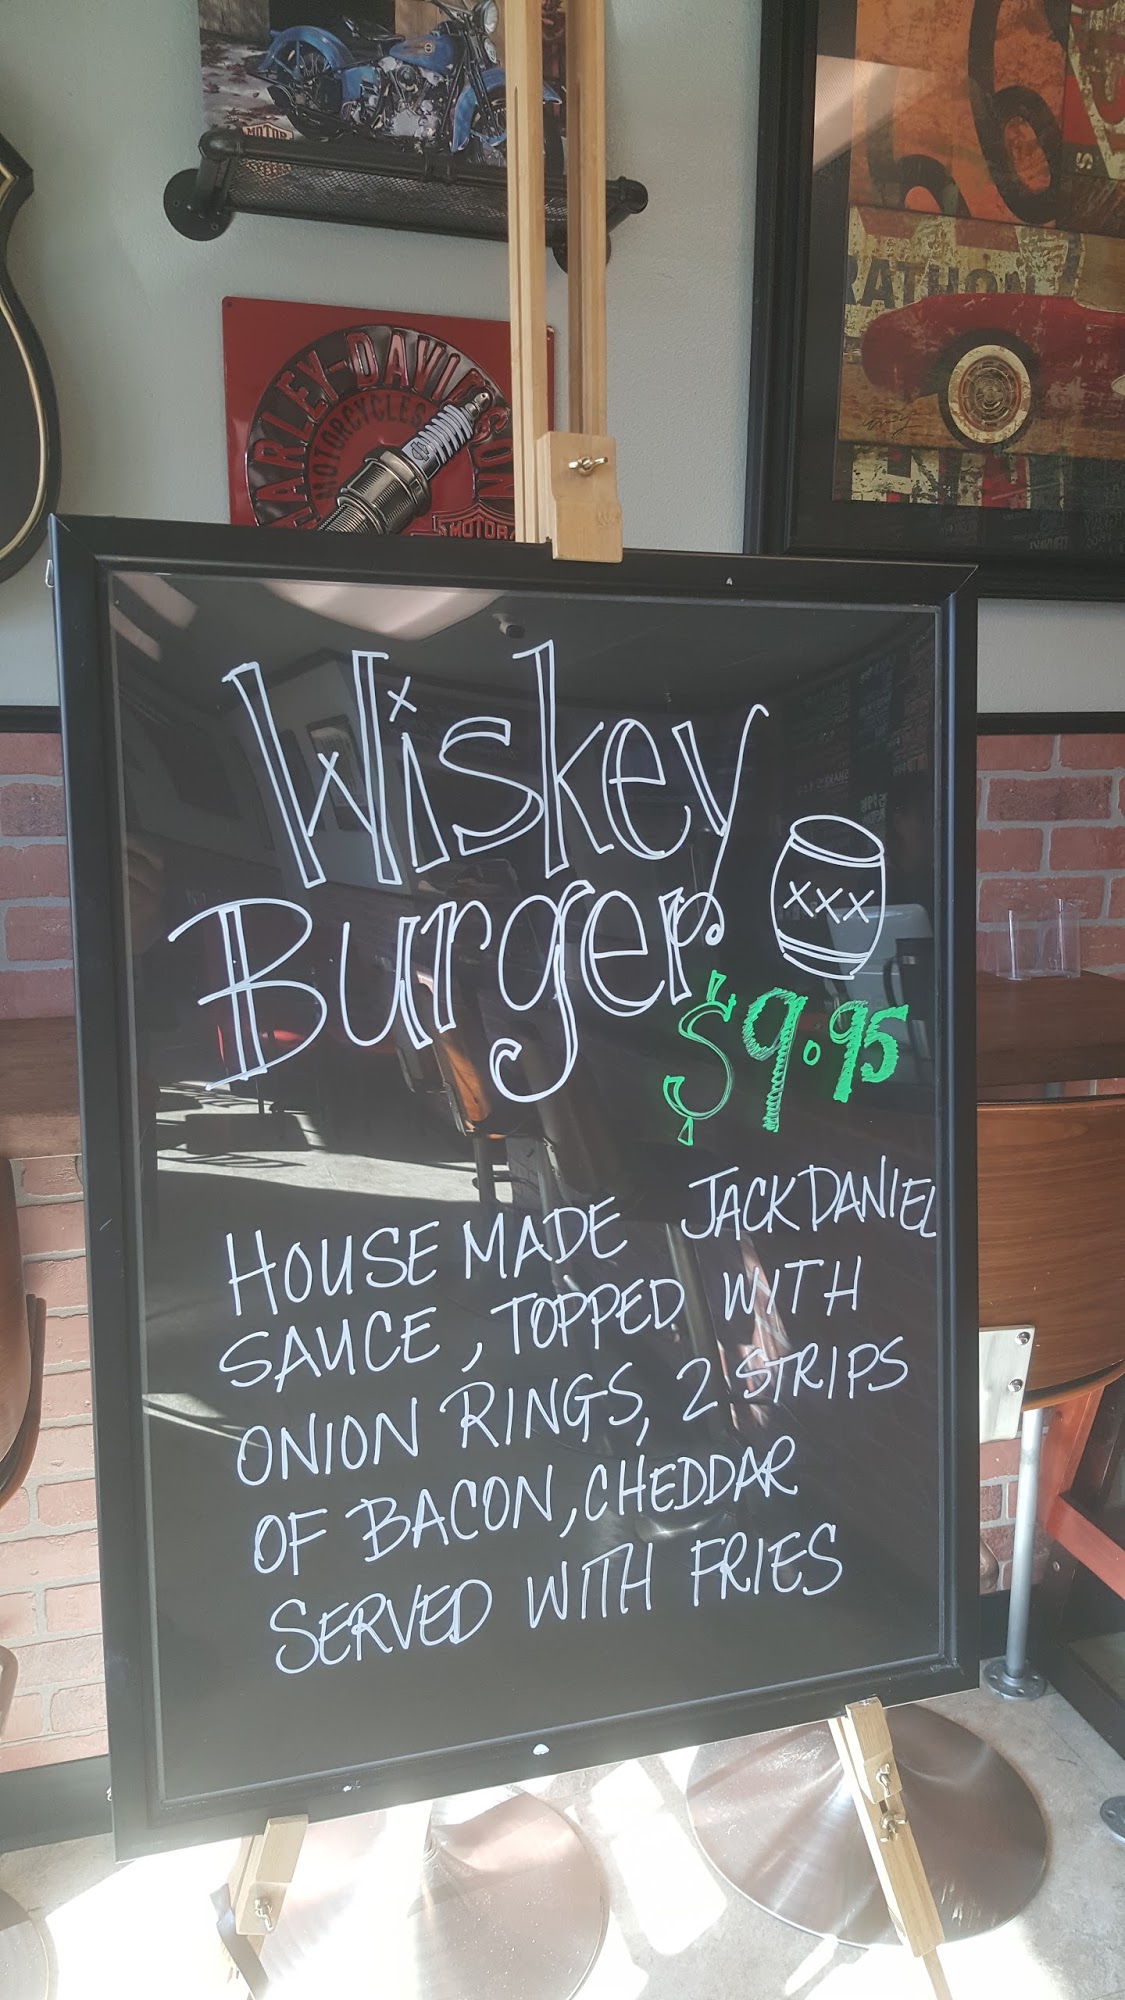 MOTOR
HARLEY-DAVIDSON
MOTORCYCLES
MOTOR
RATHON
Wiskey
Burger
XXX
$9.95
HOUSE MADE JACK DANIEL
SAUCE, TOPPED WITH
ONION RINGS, 2 STRIPS
OF BACON, CHEDDAR
SERVED WITH FRIES